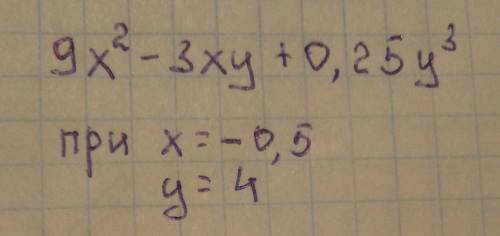 9x² - 3xy + 0,25y³
при x = -0,5
y = 4